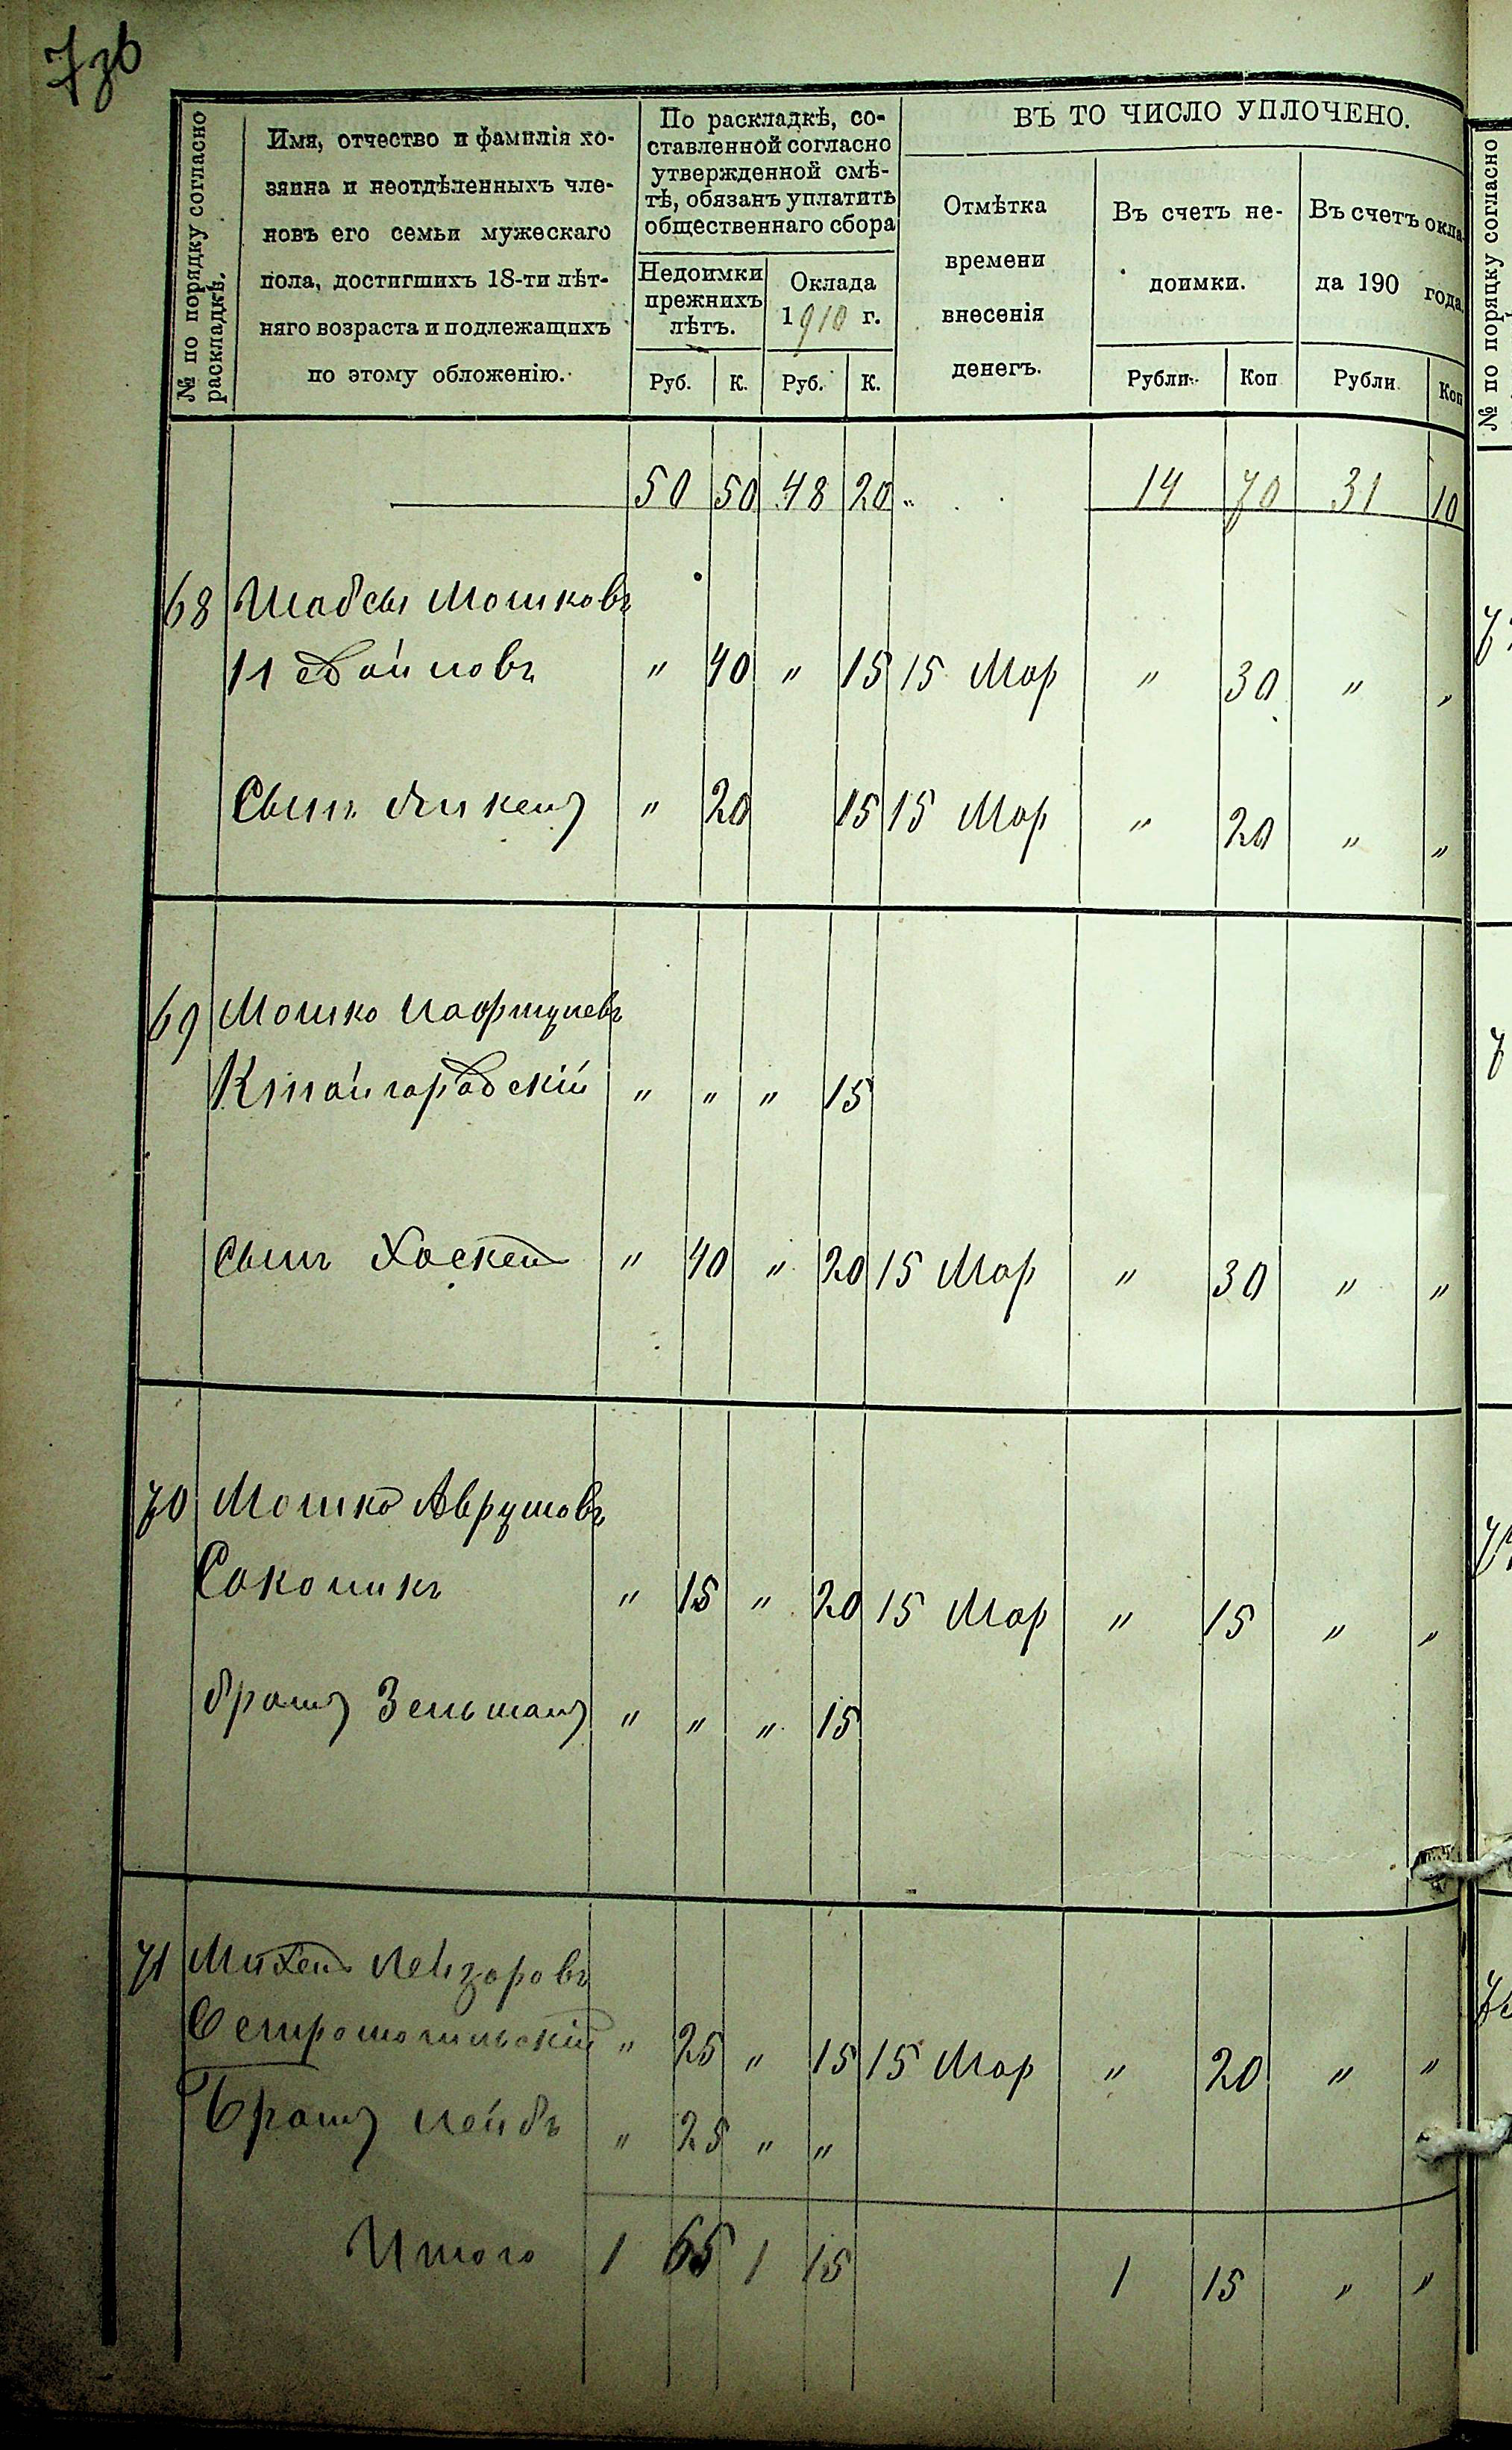 7зб
№ по порядку согласно раскладкѣ.
Имя, отчество и фамилія хо-
зяина и неотдѣленныхъ чле-
новъ его семьи мужескаго
пола, достигшихъ 18-ти лѣт-
няго возраста и подлежащихъ
по этому обложенію.
По раскладкѣ, со-
ставленной согласно
утвержденной смѣ-
тѣ, обязанъ уплатить
общественнаго сбора
Недоимки
прежнихъ
лѣтъ.
Оклада
1910 г.
Руб. К. Руб. К.
ВЪ ТО ЧИСЛО УПЛОЧЕНО.
Отмѣтка
времени
внесенія
денегъ.
Въ счетъ не-
доимки.
Рубли. Коп
Въ счетъ окла-
да 190 года.
Рубли. Коп
№ по порядку согласно
50 50 48 20 " 14 70 31 10
68 Шабсы Мошковъ
" 40 " 15 15 Мар " 30 " "
Сынъ " 20 15 15 Мар " 20 " "
69 Мошко Нафтулевъ
Китайгородскій " " " 15
Сынъ Хаскель " 40 " 20 15 Мар " 30 " "
70 Мошко Аврумовъ
Соколикъ " 15 " 20 15 Мар " 15 " "
братъ Зельманъ " " " 15
71 Михель Лейзоровъ
" 25 " 15 15 Мар " 20 " "
Братъ Лейбъ " 25 " "
Итого 1 65 1 15 1 15 " "